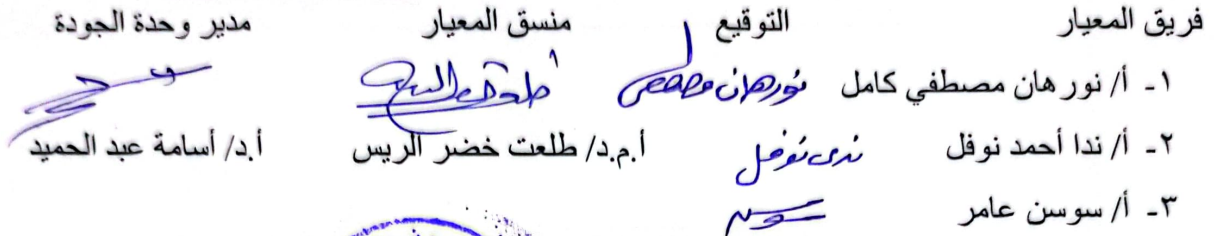 فريق المعيار التوقيع منسق المعيار مدير وحدة الجودة
١- أ/ نورهان مصطفي كامل نورهان مصطفى
٢- أ/ ندا أحمد نوفل ندى نوفل أ.م.د/ طلعت خضر الريس أ.د/ أسامة عبد الحميد
٣- أ/ سوسن عامر سوسن